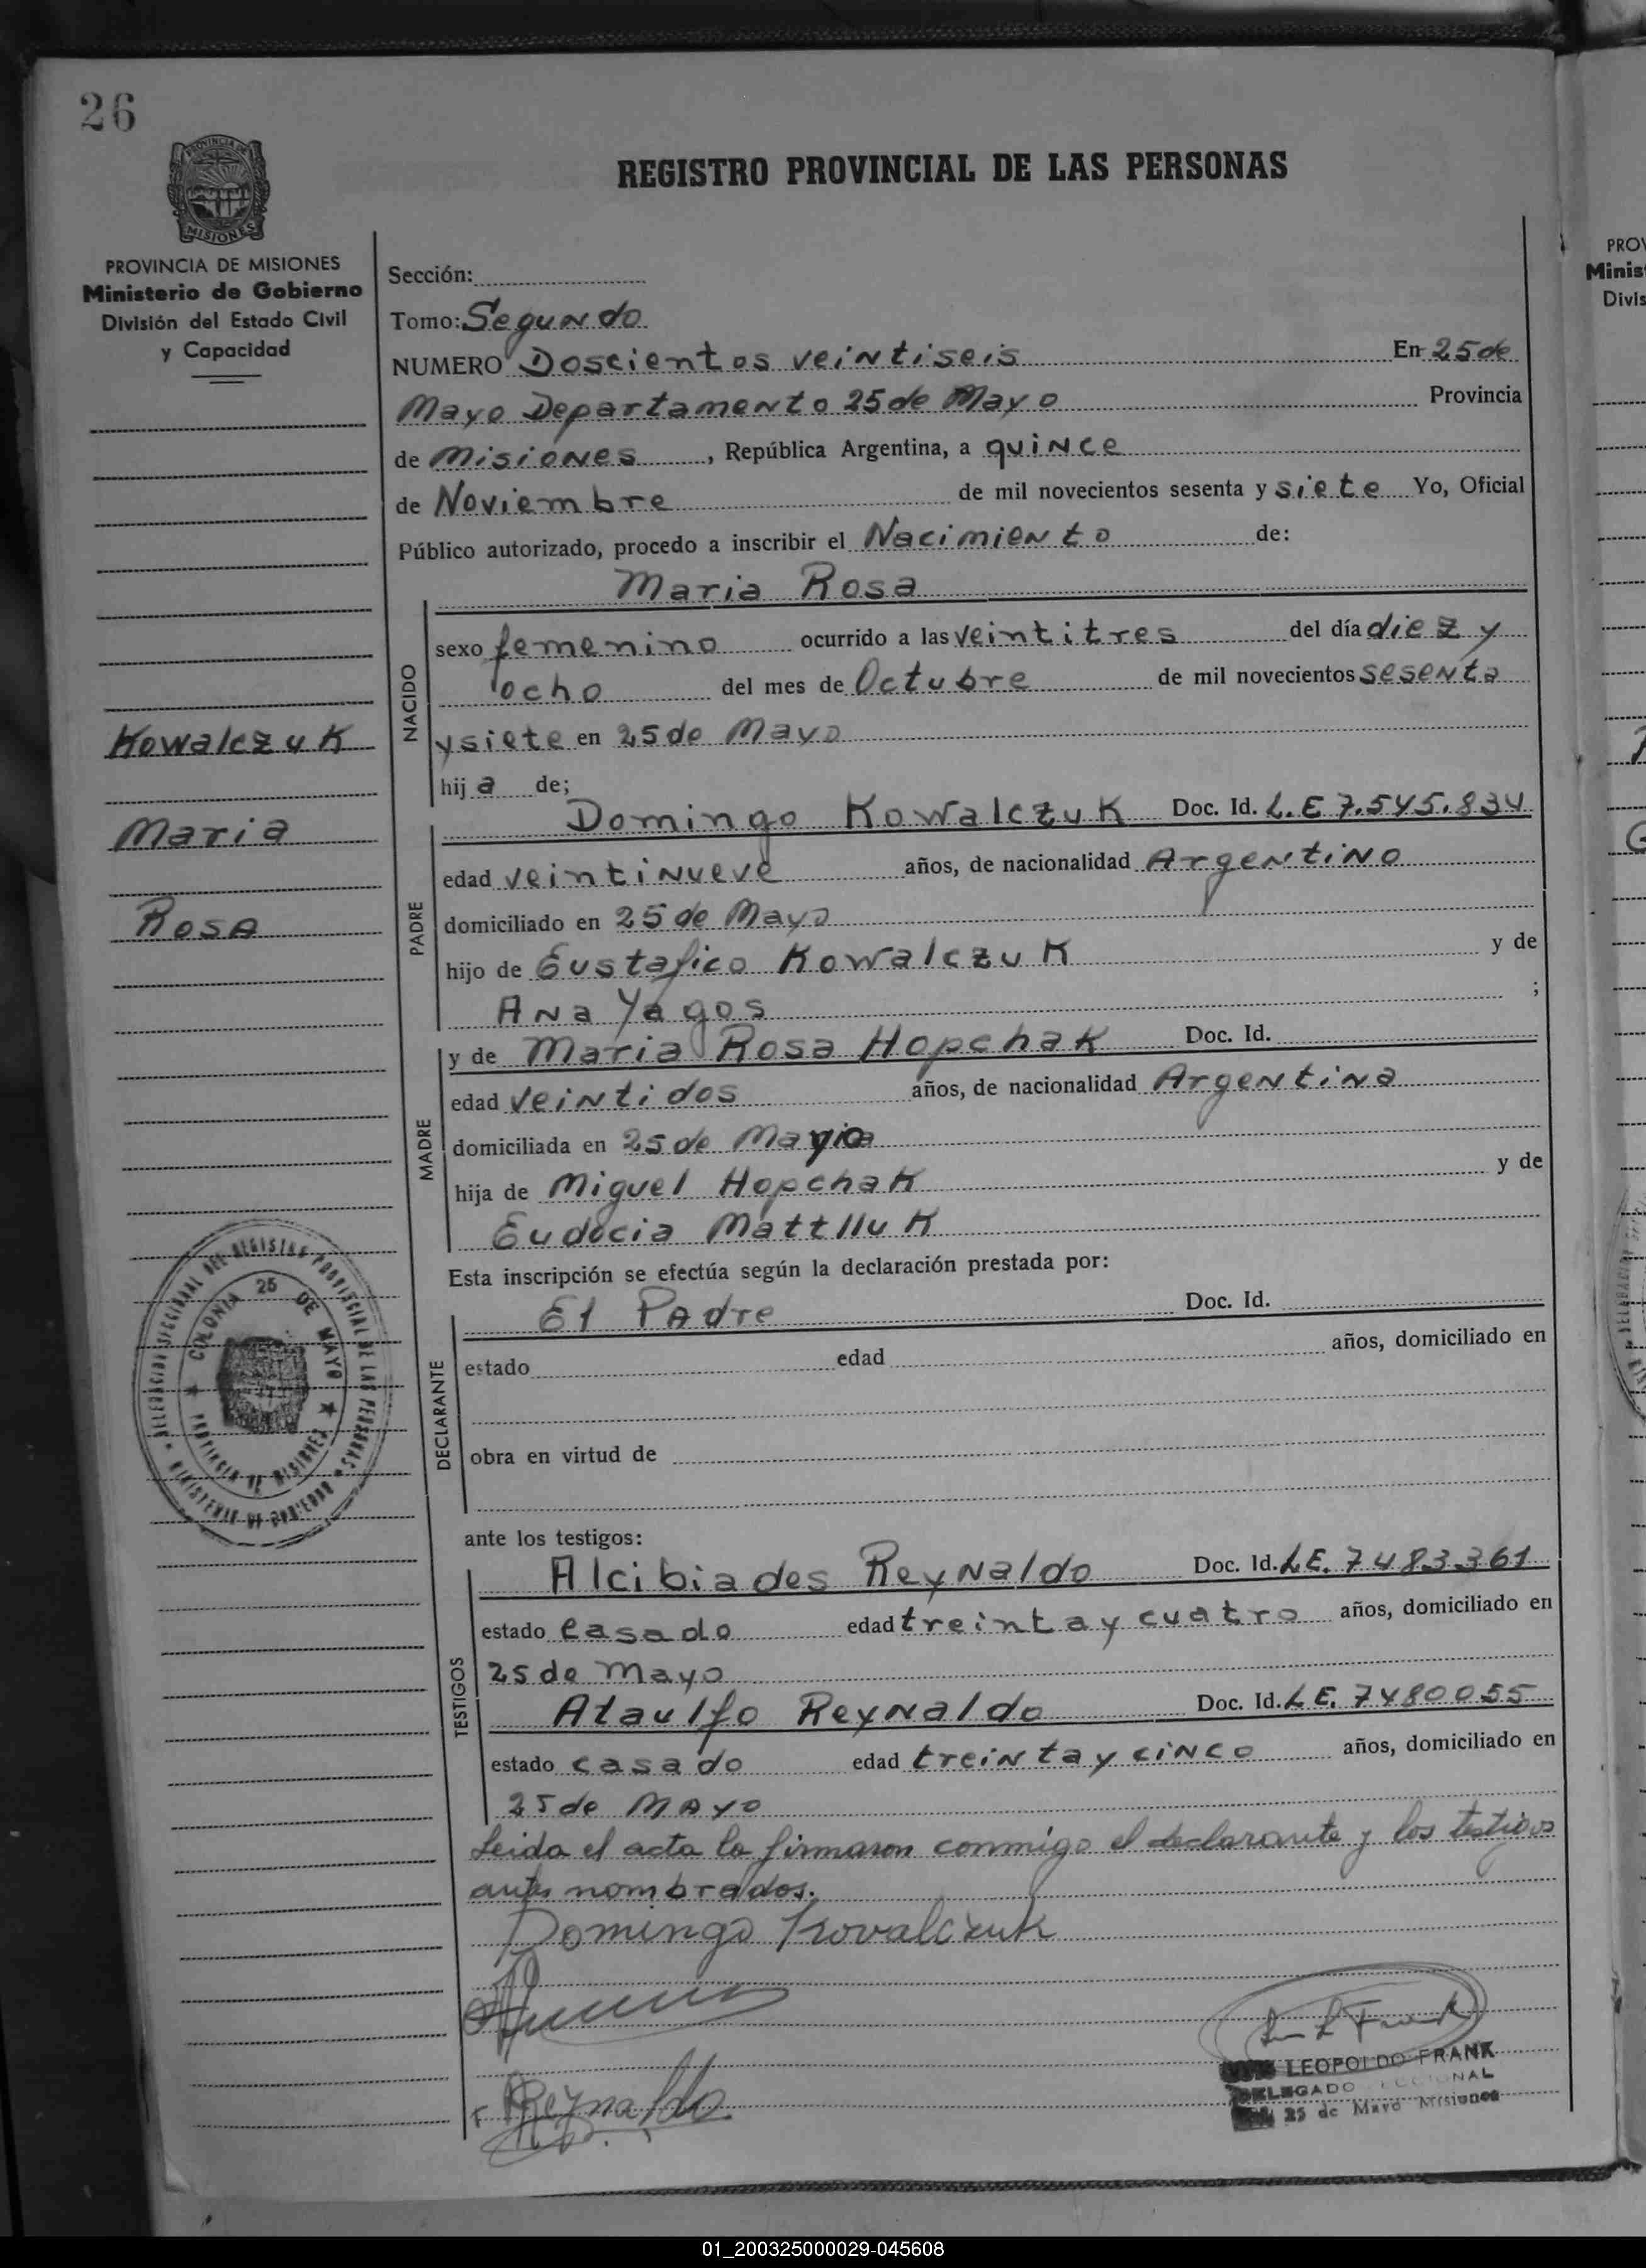 26
PROVINCIA DE
MISIONES
REGISTRO PROVINCIAL DE LAS PERSONAS
PROVINCIA DE MISIONES
Ministerio de Gobierno
División del Estado Civil
y Capacidad
Sección:
Tomo: Segundo
NUMERO Doscientos veintiseis En 25 de
Mayo Departamento 25 de Mayo Provincia
de Misiones, República Argentina, a quince
de Noviembre de mil novecientos sesenta y siete Yo, Oficial
Público autorizado, procedo a inscribir el Nacimiento de:
Maria Rosa
NACIDO
sexo femenino ocurrido a las veintitres del día diez y
ocho del mes de Octubre de mil novecientos sesenta
y siete en 25 de Mayo
hija de;
Kowalczuk
Maria
Rosa
PADRE
Domingo Kowalczuk Doc. Id. L.E 7.545.834
edad veintinueve años, de nacionalidad Argentino
domiciliado en 25 de Mayo
hijo de Eustafico Kowalczuk y de
Ana Yagos ;
MADRE
y de Maria Rosa Hopchak Doc. Id.
edad veintidos años, de nacionalidad Argentina
domiciliada en 25 de Mayo
hija de Miguel Hopchak y de
Eudocia Mattlluk
Esta inscripción se efectúa según la declaración prestada por:
DECLARANTE
El Padre Doc. Id.
estado edad años, domiciliado en
obra en virtud de
DELEGACION SECCIONAL DEL REGISTRO PROVINCIAL DE LAS PERSONAS
MINISTERIO DE GOBIERNO
COLONIA 25 DE MAYO
PROVINCIA DE MISIONES
ante los testigos:
TESTIGOS
Alcibiades Reynaldo Doc. Id. L.E. 7483361
estado casado edad treinta y cuatro años, domiciliado en
25 de Mayo
Ataulfo Reynaldo Doc. Id. L.E. 7480055
estado casado edad treinta y cinco años, domiciliado en
25 de MAYO
Leida el acta la firmaron conmigo el declarante y los testigos
antes nombrados.
Domingo Kovalczuk
Reynaldo
LEOPOLDO FRANK
DELEGADO SECCIONAL
25 de Mayo Misiones
PROV
Minis
Divis
01_200325000029-045608